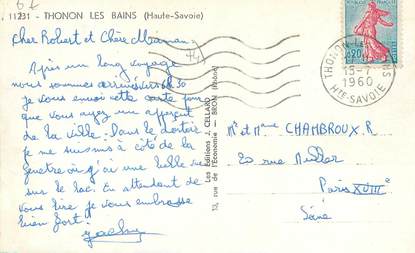 11231 - THONON LES BAINS (Haute-Savoie)
Cher Robert et Chère Maman
Après un long voyage
nous sommes arrivés vers 6h30
Je vous envoi cette carte pour
que vous ayez un apperçut
de la ville. Dans le dortoir
je me suis mis à côté de la
fenetre ou j'ai une belle vue
sur le lac. En attendant de
vous lire je vous embrasse
bien fort.
Jacky
Les Editions J. CELLARD
13, rue de l'Economie — BRON (Rhône)
0,20
THONON-LES-BAINS
15-7
1960
HTE-SAVOIE
Mr et Mme CHAMBROUX.R
20 rue Muller
Paris XVIIIe
Seine